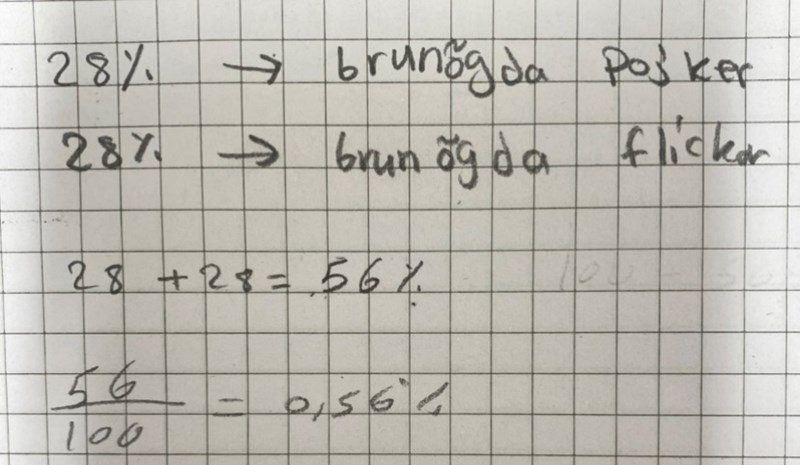 28% → brunögda pojker
28% → brunögda flickor
28 + 28 = 56%
56
100 = 0,56%